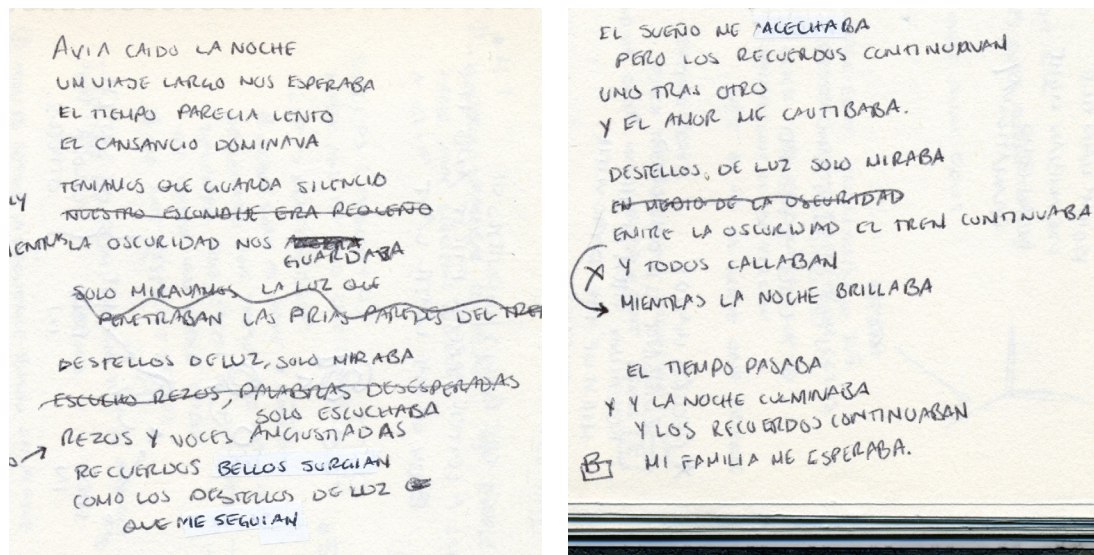 AVIA CAIDO LA NOCHE
UN VIAJE LARGO NOS ESPERABA
EL TIEMPO PARECIA LENTO
EL CANSANCIO DOMINAVA
TENIAMOS QUE GUARDA SILENCIO
NUESTRO ESCONDIJE ERA PEQUEÑO
LA OSCURIDAD NOS
GUARDABA
SOLO MIRAVAMOS LA LUZ QUE
PENETRABAN LAS FRIAS PAREDES DEL TREN
DESTELLOS DE LUZ, SOLO MIRABA
ESCUCHO REZOS, PALABRAS DESESPERADAS
SOLO ESCUCHABA
REZOS Y VOCES ANGUSTIADAS
RECUERDOS BELLOS SURGIAN
COMO LOS DESTELLOS DE LUZ
QUE ME SEGUIAN
EL SUEÑO ME ACECHABA
PERO LOS RECUERDOS CONTINUAVAN
UNO TRAS OTRO
Y EL AMOR ME CAUTIBABA.
DESTELLOS, DE LUZ SOLO MIRABA
EN MEDIO DE LA OSCURIDAD
ENTRE LA OSCURIDAD EL TREN CONTINUABA
Y TODOS CALLABAN
MIENTRAS LA NOCHE BRILLABA
EL TIEMPO PASABA
Y Y LA NOCHE CULMINABA
Y LOS RECUERDOS CONTINUABAN
B MI FAMILIA ME ESPERABA.